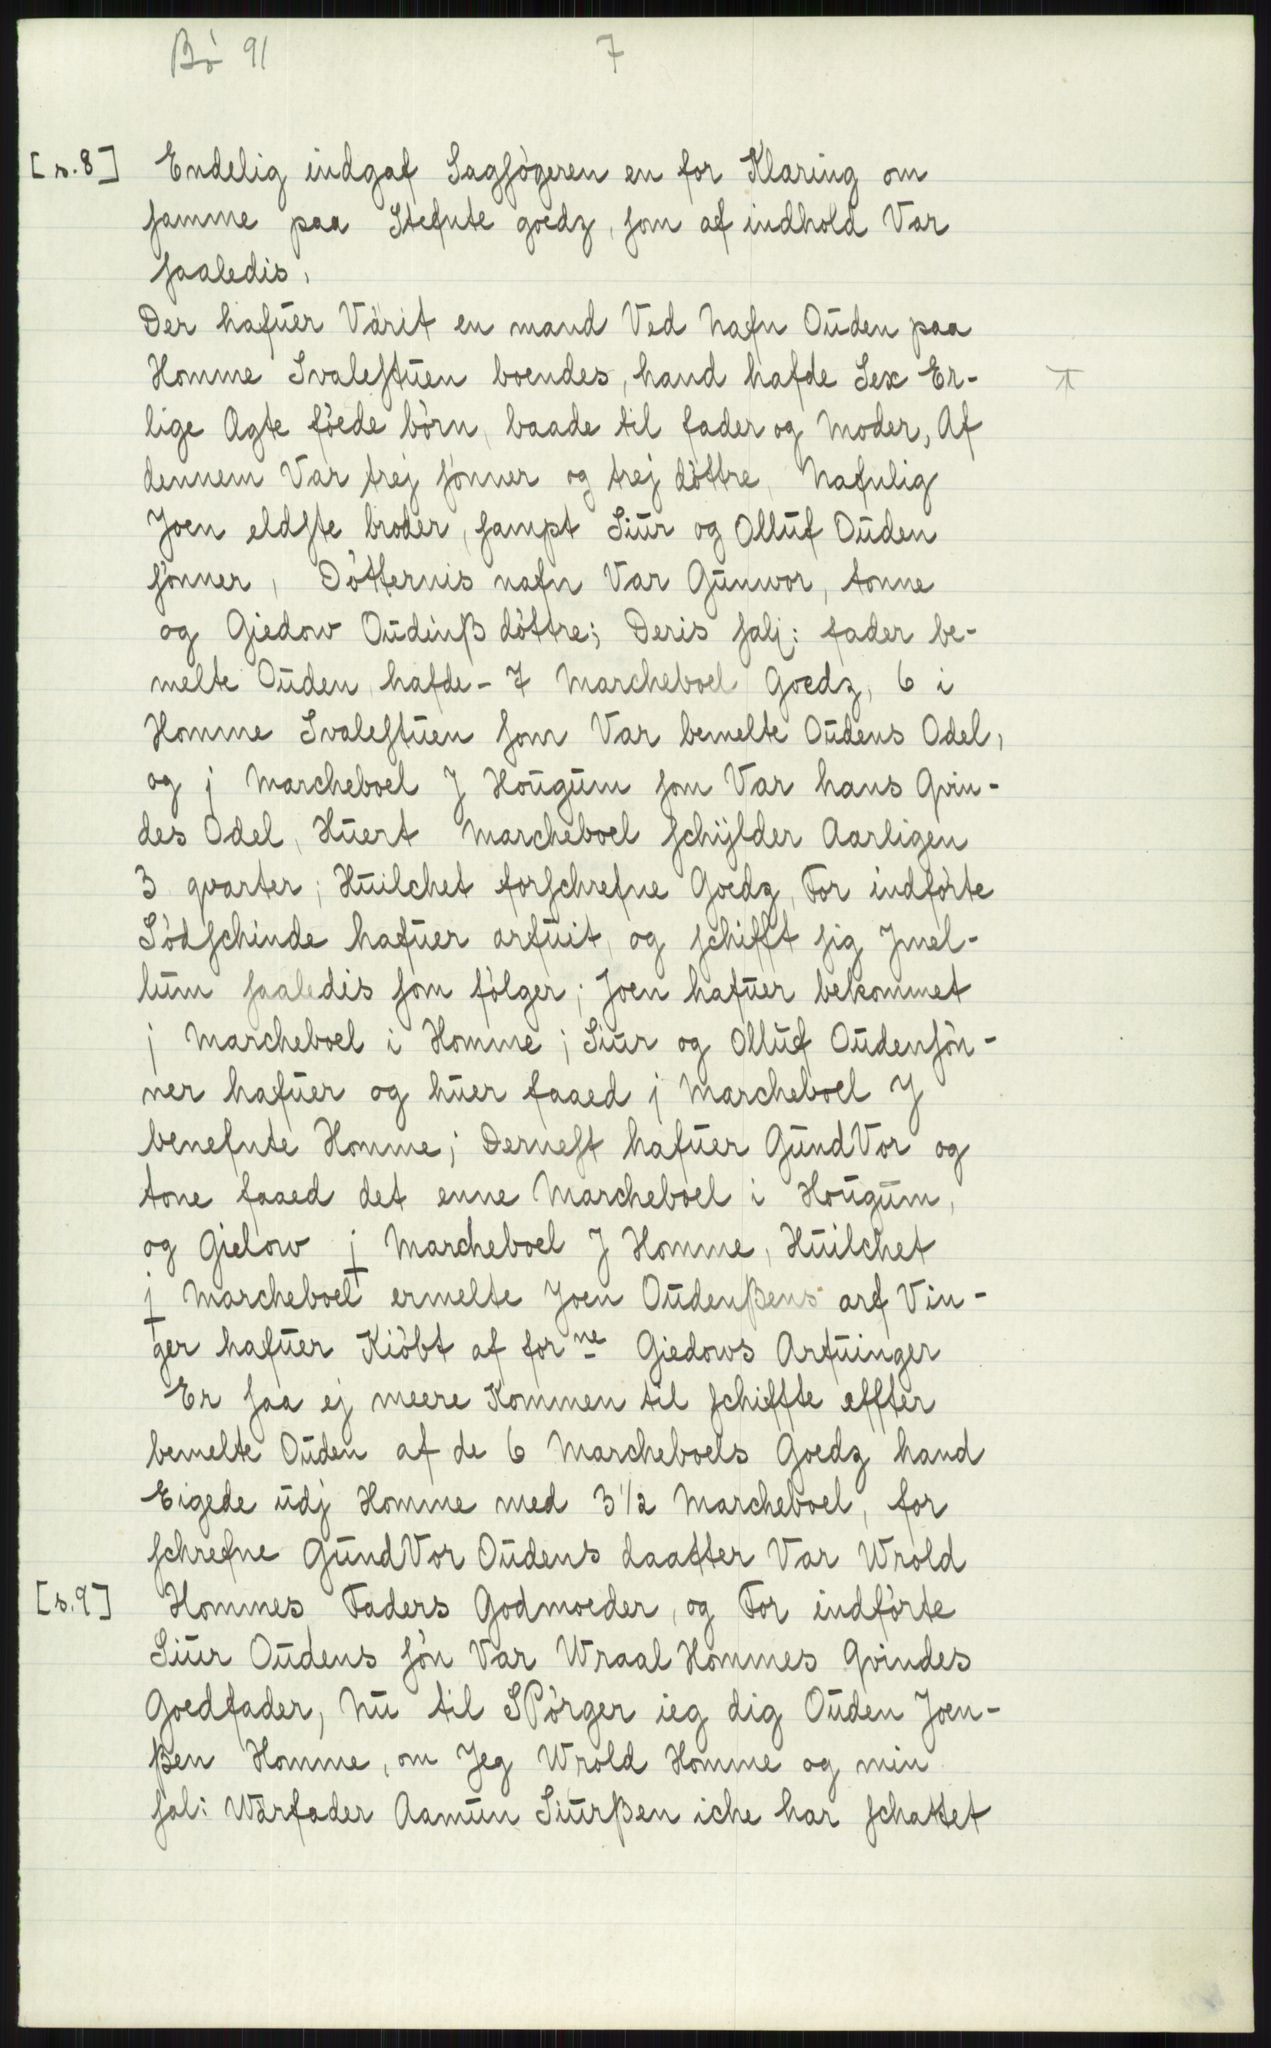 Bö 91 7
[s. 8] Endelig indgaf Sagsögeren en for Klaring om
samme paa Stefnte goedz, som af indhold Var
saaledis,
Der hafuer Värit en mand Ved Nafn Ouden paa
Homme Svalestuen boendes, hand hafde Sex Er-
lige Agte föede börn, baade til fader og Moder, Af
dennem Var trej sönner og trej döttre, Nafnlig
Joen eldste broder, sampt Siur og Olluf Ouden
sönner, Dötternis nafn Var Gunwor, tonne
og Giedow Oudinß döttre; Deris salj: fader be-
melte Ouden hafde - 7 Marcheboel Goedz, 6 i
Homme Svalestuen som Var bemelte Oudens Odel,
og j Marcheboel J Hougum som Var hans Qvin-
des Odel, Huert Marcheboel schylder Aarligen
3 qvarter; Huilchet forschrefne Goedz, For indförte
Södschinde hafuer arfuit, og schifft sig Jmel-
lum saaledis som fölger; Joen hafuer bekommet
j Marcheboel i Homme; Siur og Olluf Oudensön-
ner hafuer og huer faaed j Marcheboel J
benefnte Homme; Dernest hafuer GundVor og
tone faaed det enne Marcheboel i Hougum,
og Gielow j Marcheboel J Homme, Huilchet
j Marcheboel ermelte Joen Oudenßens arf Vin-
ger hafuer Kiöbt af for ne Giedows Arfuinger
Er saa ej meere Kommen til schiffte effter
bemelte Ouden af de 6 Marcheboels Goedz hand
Eigede udj Homme med 3 1/2 Marcheboel, for
schrefne GundVor Oudens daatter Var Wrold
[s. 9] Hommes Faders Godmoeder, og For indförte
Siur Oudens sön Var Wraal Hommes Qvindes
Goedfader, Nu til SPörger ieg dig Ouden Joen-
ßen Homme, om Jeg Wrold Homme og min
sal: Wärfader Aamun Siurßen iche har schattet